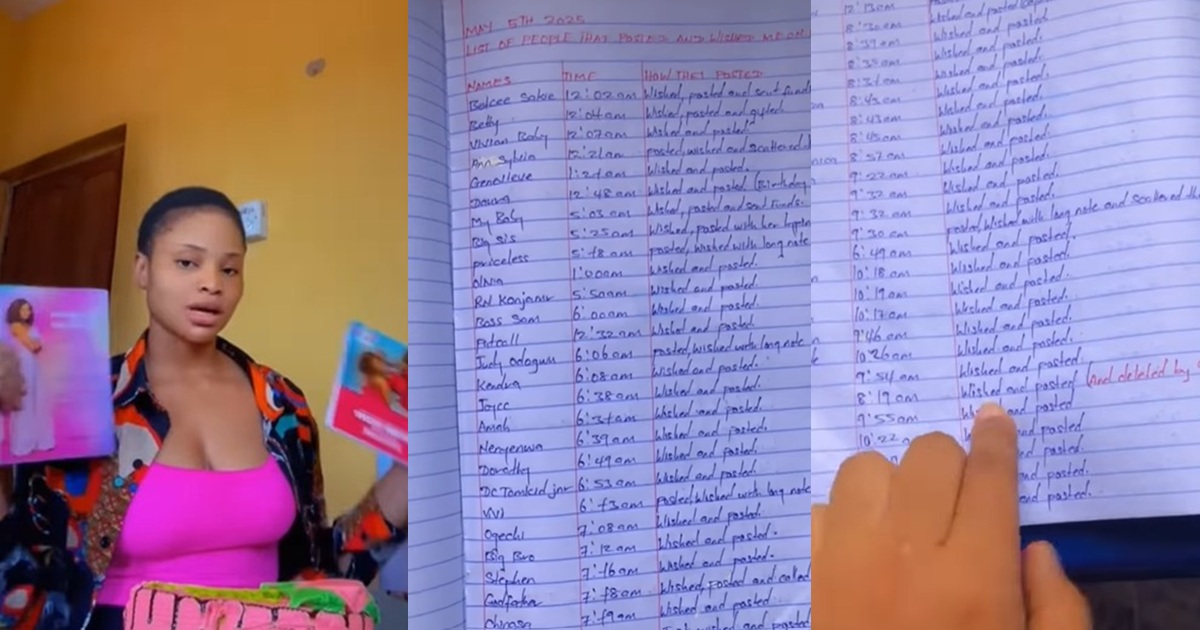 MAY 5TH 2025
LIST OF PEOPLE THAT POSTED AND WISHED ME ON
NAMES TIME HOW THEY POSTED
12:02am Wished, posted and sent funds
Betty 12:04am Wished, posted and gifted.
Vivian Baby 12:07am Wished and posted.
Ann Sylvia 12:21am posted, wished and scattered
Genevieve Wished and posted.
12:48am Wished and posted (Birthday
My Baby 5:03am Wished, posted and sent funds.
Big Sis 5:25am Wished, posted with her
priceless posted, wished with long note
Olivia 1:00am Wished and posted.
5:50am Wished and posted.
Boss Sam 6:00am Wished and posted.
12:32am Wished and posted.
Judy 6:06am posted, wished with long note
6:08am Wished and posted.
Joyce 6:38am Wished and posted.
Wished and posted.
6:39am Wished and posted.
Dorothy 6:49am Wished and posted.
6:53am Wished and posted.
VVI posted, wished with long note
Ogechi 7:08am Wished and posted.
Big Bro 7:12am Wished and posted.
Stephen Wished and posted.
Godfather Wished, posted and called
Chinasa Wished and posted
wished and posted
12:13am Wished and posted
8:30am Wished and posted.
Wished and posted.
8:35am Wished and posted.
Wished and posted.
8:43am Wished and posted.
8:43am Wished and posted.
8:45am Wished and posted.
8:57am Wished and posted.
9:22am Wished and posted.
9:32am Wished and posted.
9:32am Wished and posted.
9:30am posted, wished with long note and scattered
6:49am Wished and posted.
10:18am Wished and posted.
10:19am Wished and posted.
10:17am Wished and posted.
9:46am Wished and posted.
10:26am Wished and posted.
9:54am Wished and posted.
8:19am Wished and posted (And deleted by
9:55am and posted
10:22 and posted
and posted.
and posted.
and posted.